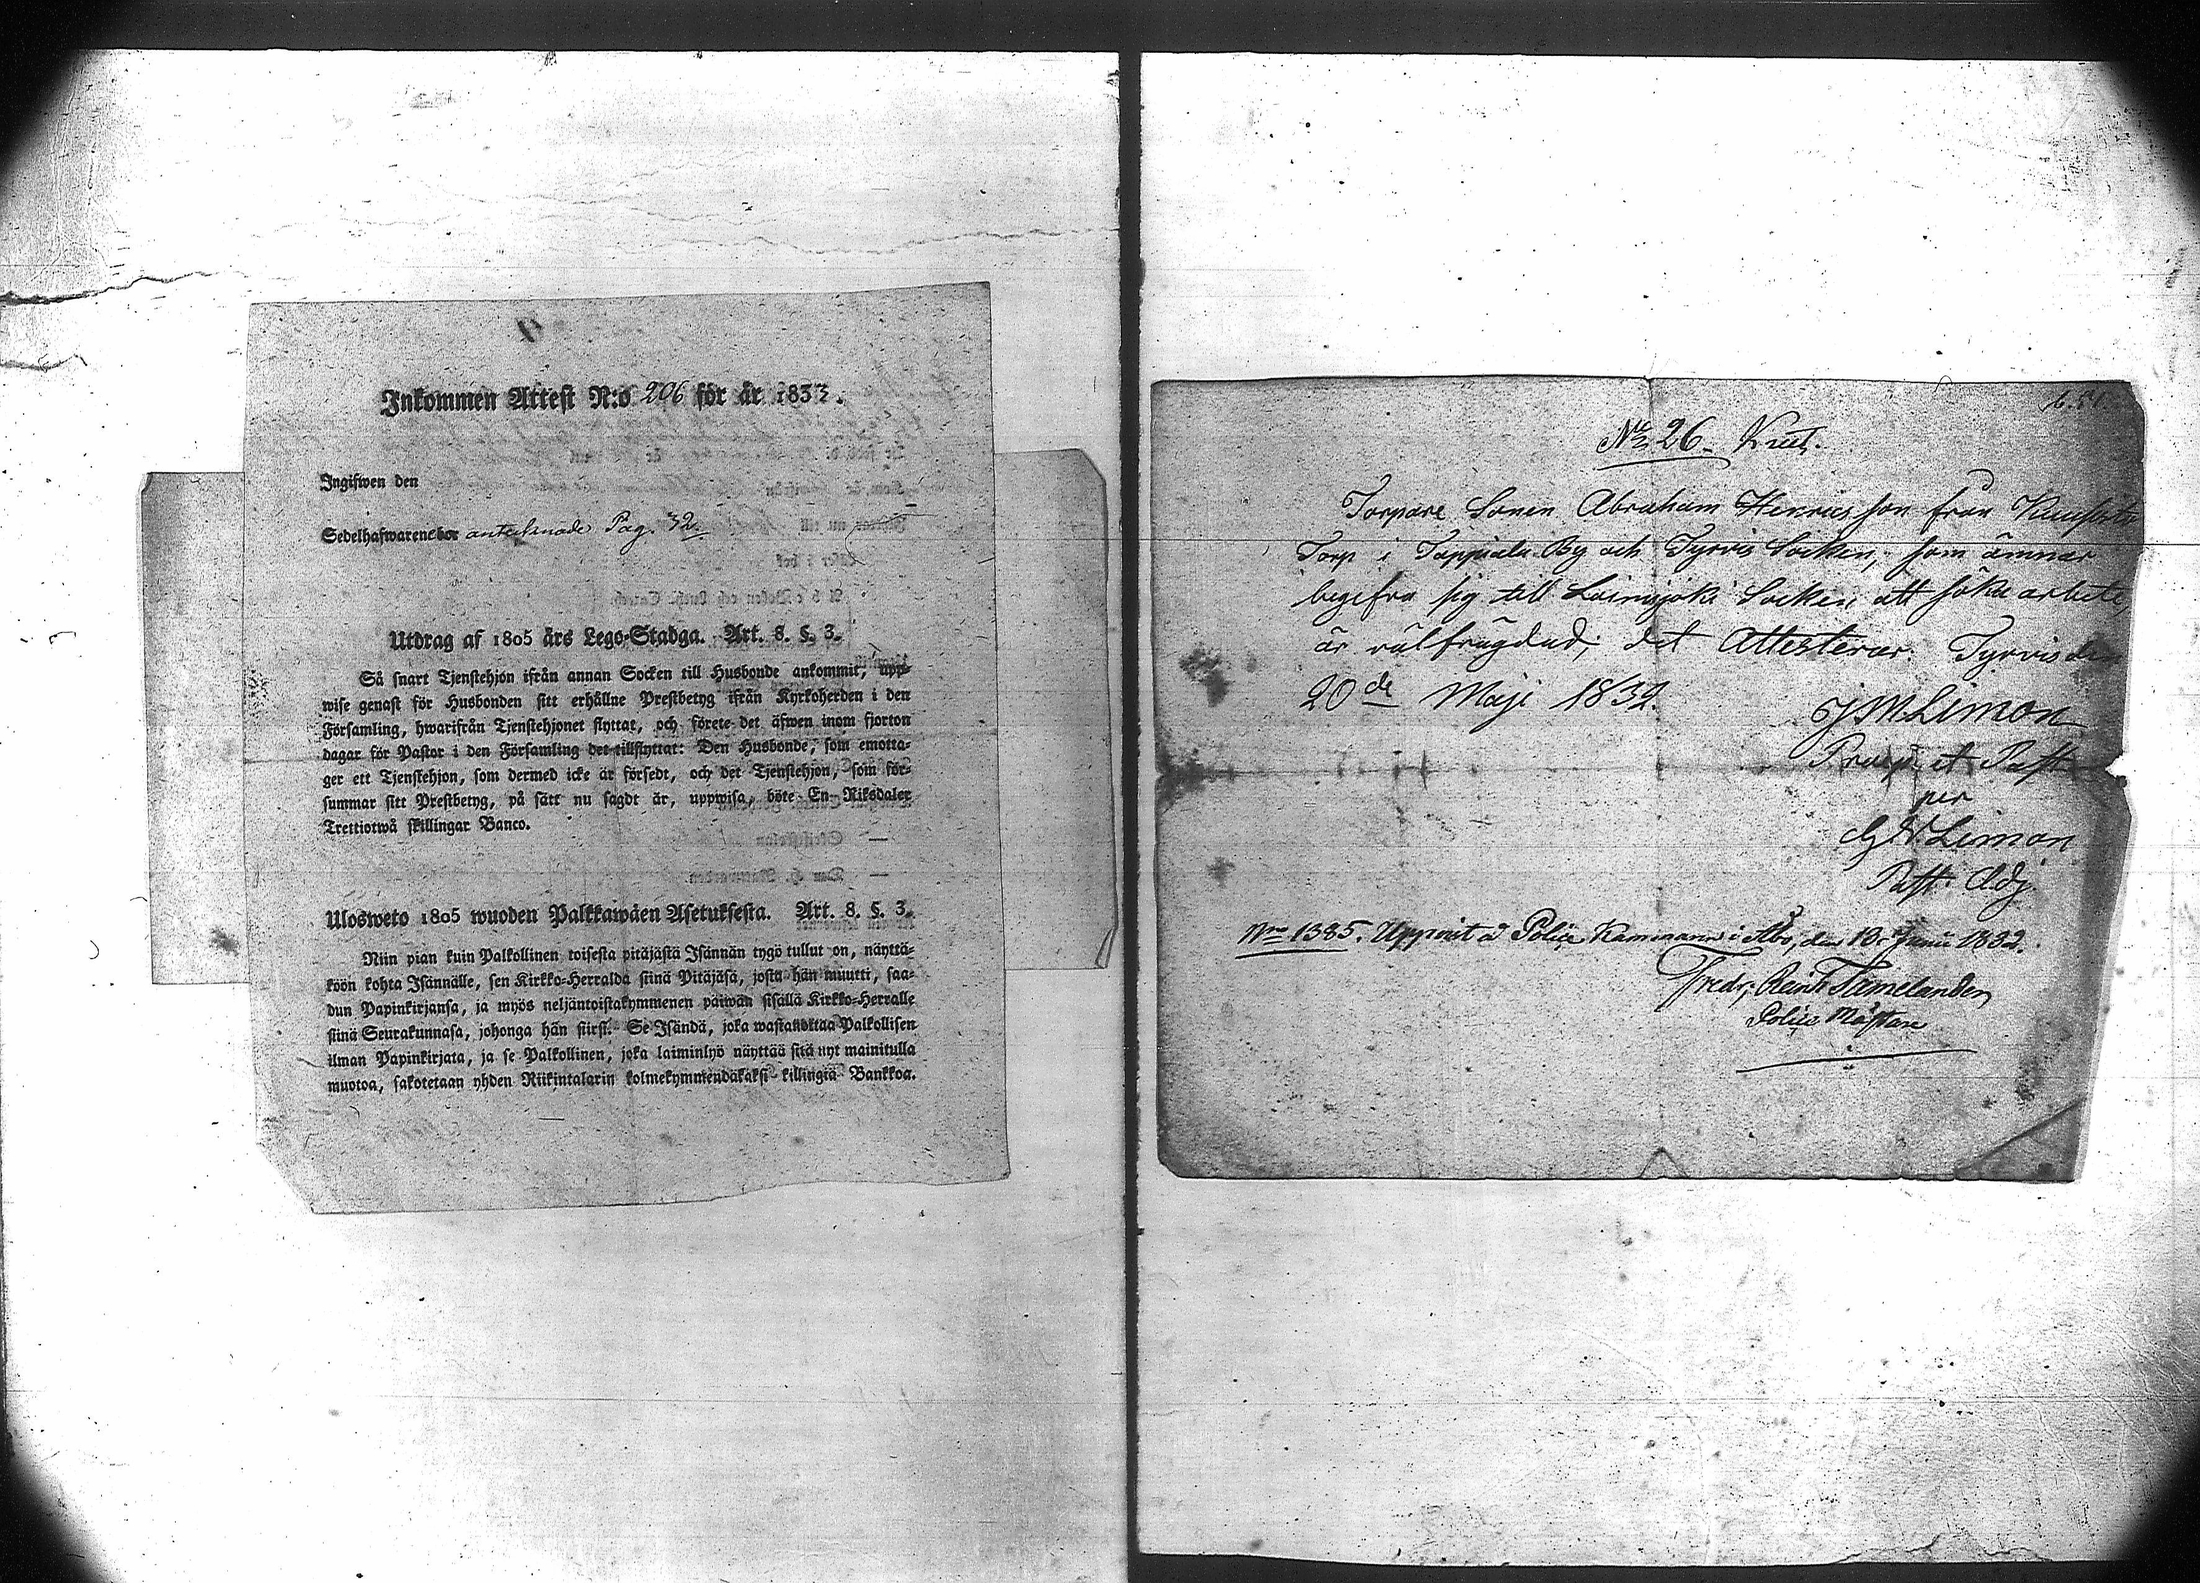 Inkommen Attest N:o 206 för år 1833.
Ingifwen den
Sedelhafwarene bor antecknade Pag. 32.
Utdrag af 1805 års Lego-Stadga. Art. 8. §. 3.
Så snart Tjenstehjon ifrån annan Socken till Husbonde ankommit, upp-
wise genast för Husbonden sitt erhållne Prestbetyg ifrån Kyrkoherden i den
Församling, hwarifrån Tjenstehjonet flyttat, och förete det äfwen inom fjorton
dagar för Pastor i den Församling det tillflyttat: Den Husbonde, som emotta-
ger ett Tjenstehjon, som dermed icke är försedt, och det Tjenstehjon, som för-
summar sitt Prestbetyg, på sätt nu sagdt är, uppwisa, böte En Riksdaler
Trettiotwå skillingar Banco.
Ulosweto 1805 wuoden Palkkawäen Asetuksesta. Art. 8. §. 3.
Niin pian kuin Palkollinen toisesta pitäjästä Isännän tygö tullut on, näyttä-
köön kohta Isännälle, sen Kirkko-Herralda siinä Pitäjäsä, josta hän muutti, saa-
dun Papinkirjansa, ja myös neljäntoistakymmenen päiwän sisällä Kirkko-Herralle
siinä Seurakunnasa, johonga hän siirsi. Se Isändä, joka wastanottaa Palkollisen
ilman Papinkirjata, ja se Palkollinen, joka laiminlyö näyttää sitä nyt mainitulla
muotoa, sakotetaan yhden Riikintalarin kolmekymmendäkaksi killingiä Bankkoa.
No 26
Torpare Sonen Abraham Henricsson från
Torp i By och Tyrvis Socken, som ämnar
begifva sig till Loimijoki Socken att söka arbete,
är välfrägdad; det Attesterar. Tyrvis den
20de Maji 1832.
J M Limon
Præp. et Past.
per
G N. Limon
Past. Adj.
Nro 1385. Uppvist å Police Kammaren i Åbo, den 13 Junii 1832.
Fredr. Reinh
Police Mästare